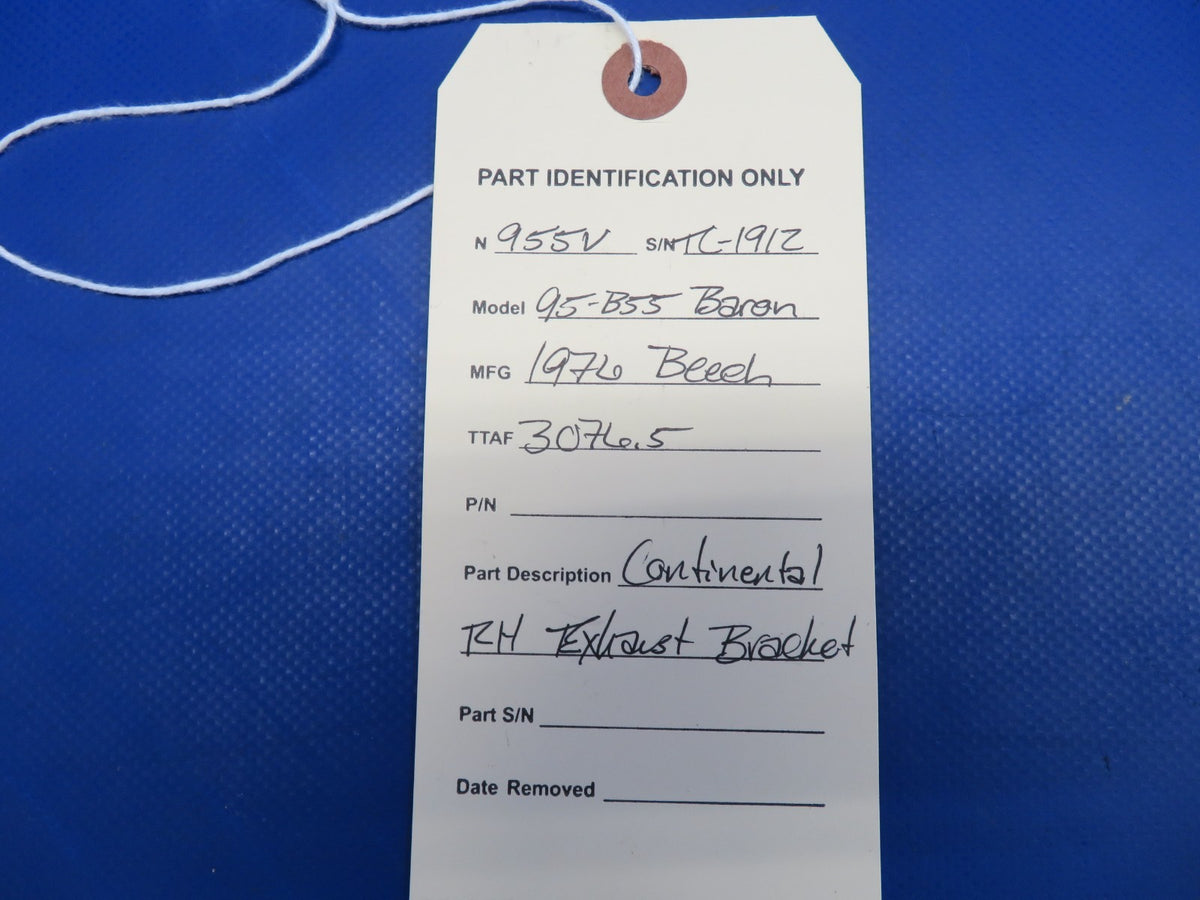 PART IDENTIFICATION ONLY
N 955V S/N TC-1912
Model 95-B55 Baron
MFG 1976 Beech
TTAF 3076.5
P/N
Part Description Continental
RH Exhaust Bracket
Part S/N
Date Removed